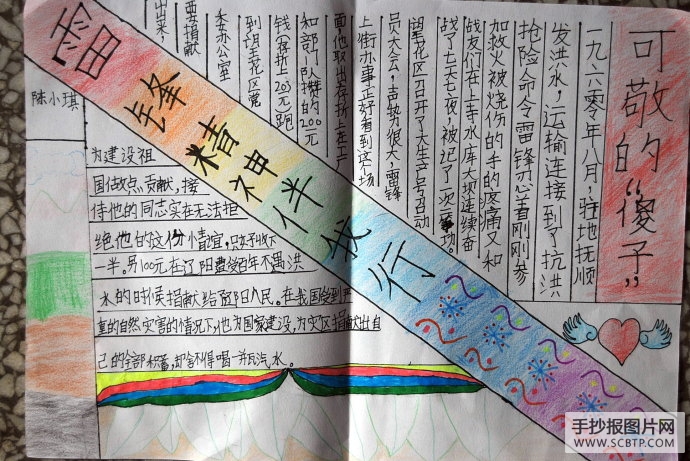 雷锋精神伴我行
可敬的“傻子”
一九六零年八月，驻地抚顺
发洪水，运输连接到了抗洪
抢险命令雷锋忍着刚刚参
加救火被烧伤的手的疼痛又和
战友们在上寺水库大坝连续奋
战了七天七夜，被记了一次二等功。
望花区召开了大生产号召动
员大会，声势很大，雷锋
上街办事正好看到这个场
面他取出存折上在工厂
和部队攒的200元
钱（存折上203元）跑
到望花区党
委办公室
要捐献
出来，
为建设祖
国做点贡献，接
待他的同志实在无法拒
绝他的这份情谊，只好收下
一半。另100元在辽阳遭受百年不遇洪
水的时候捐献给辽阳人民。在我国受到严
重的自然灾害的情况下，他为国家建设，为灾区捐献出自
己的全部积蓄，却舍不得喝一瓶汽水。
陈小琪
手抄报图片网
WWW.SCBTP.COM